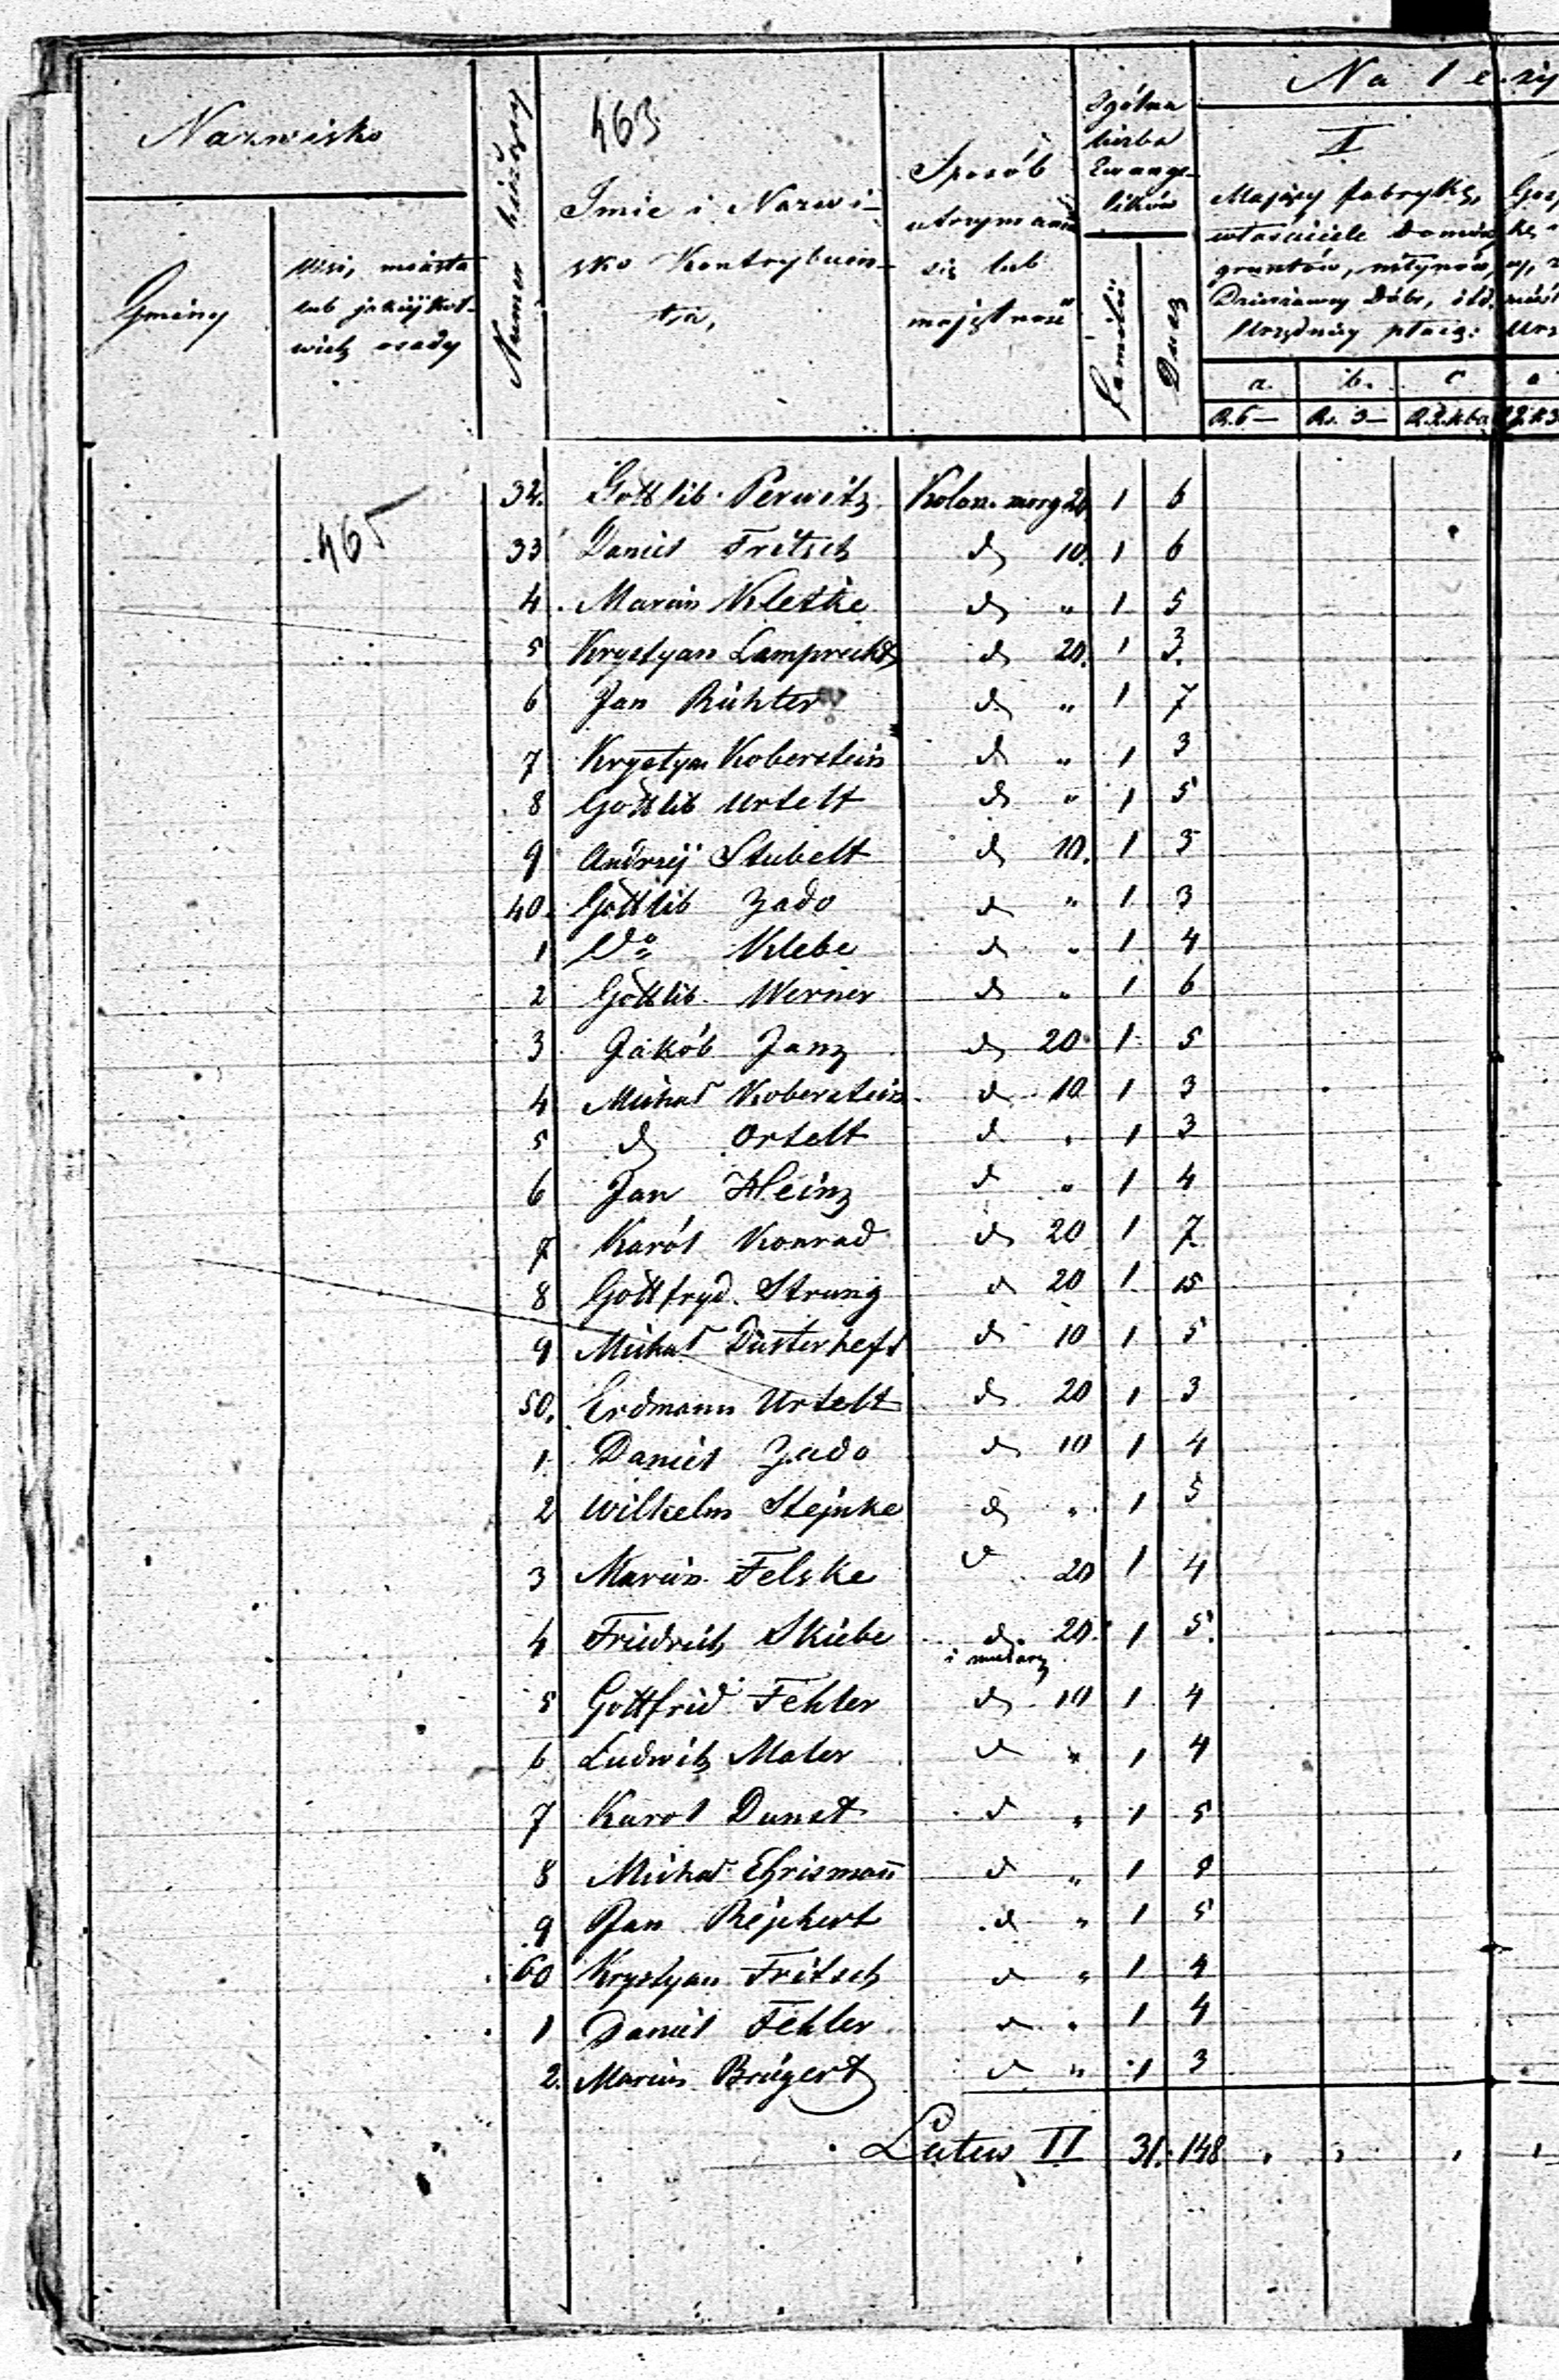 Nazwisko
Gminy
Wsi, miasta
lub jakiejkol-
wiek osady
Numer bieżący
463
Imie i Nazwi-
sko Kontrybuen-
ta,
Sposób
utrzymania
się lub
majętność
Ogólna
liczba
Ewange-
lików
Familii
Dusz
Na 1
II
Mający fabrykę,
właściciele domów,
gruntów, młynów,
Dzierżawcy Dóbr, itd.
Urzędnicy płacą:
a. b. c a
R. 6 — Rs. 3 —
465
32. Gottlib Perwitz Kolon. morg 20 1 6
33 Daniel Fritsch d 10. 1 6
4. Marcin Kletke d " 1 5
5 Krystyan Lamprecht d 20. 1 3.
6 Jan Richter d " 1 7
7 Krystyan Koberstein d " 1 3
8 Gottlib Urtelt d " 1 5
9 Andrzej Stubelt d 10. 1 5
40. Gottlib Zado d " 1 3
1 do Klebe d " 1 4
2 Gottlib Werner d " 1 6
3 Jakób Janz d 20 1 5
4 Michał Koberstein d 10 1 3
5 d Ortelt d " 1 3
6 Jan Heinz d " 1 4
7 Karól Konrad d 20 1 7
8 Gottfryd Strunig d 20 1 5
9 Michał Düsterheft d 10 1 5
50. Erdmann Urtelt d 20 1 3
1 Daniel Zado d 10 1 4
2 Wilhelm Stejnke d " 1 5
3 Marcin Felske d 20 1 4
4 Friedrich Skiebe d 20. 1 5
i mularz
5 Gottfrid Fehler d 10 1 4
6 Ludwik Maler d " 1 4
7 Karol Dunst d " 1 5
8 Michał Ehrismann d " 1 8
9 Jan Rejchert d " 1 5
60 Krystyan Fritsch d " 1 4
1 Daniel Fehler d " 1 4
2. Marcin Brügert d " 1 3
Latus II 31. 148